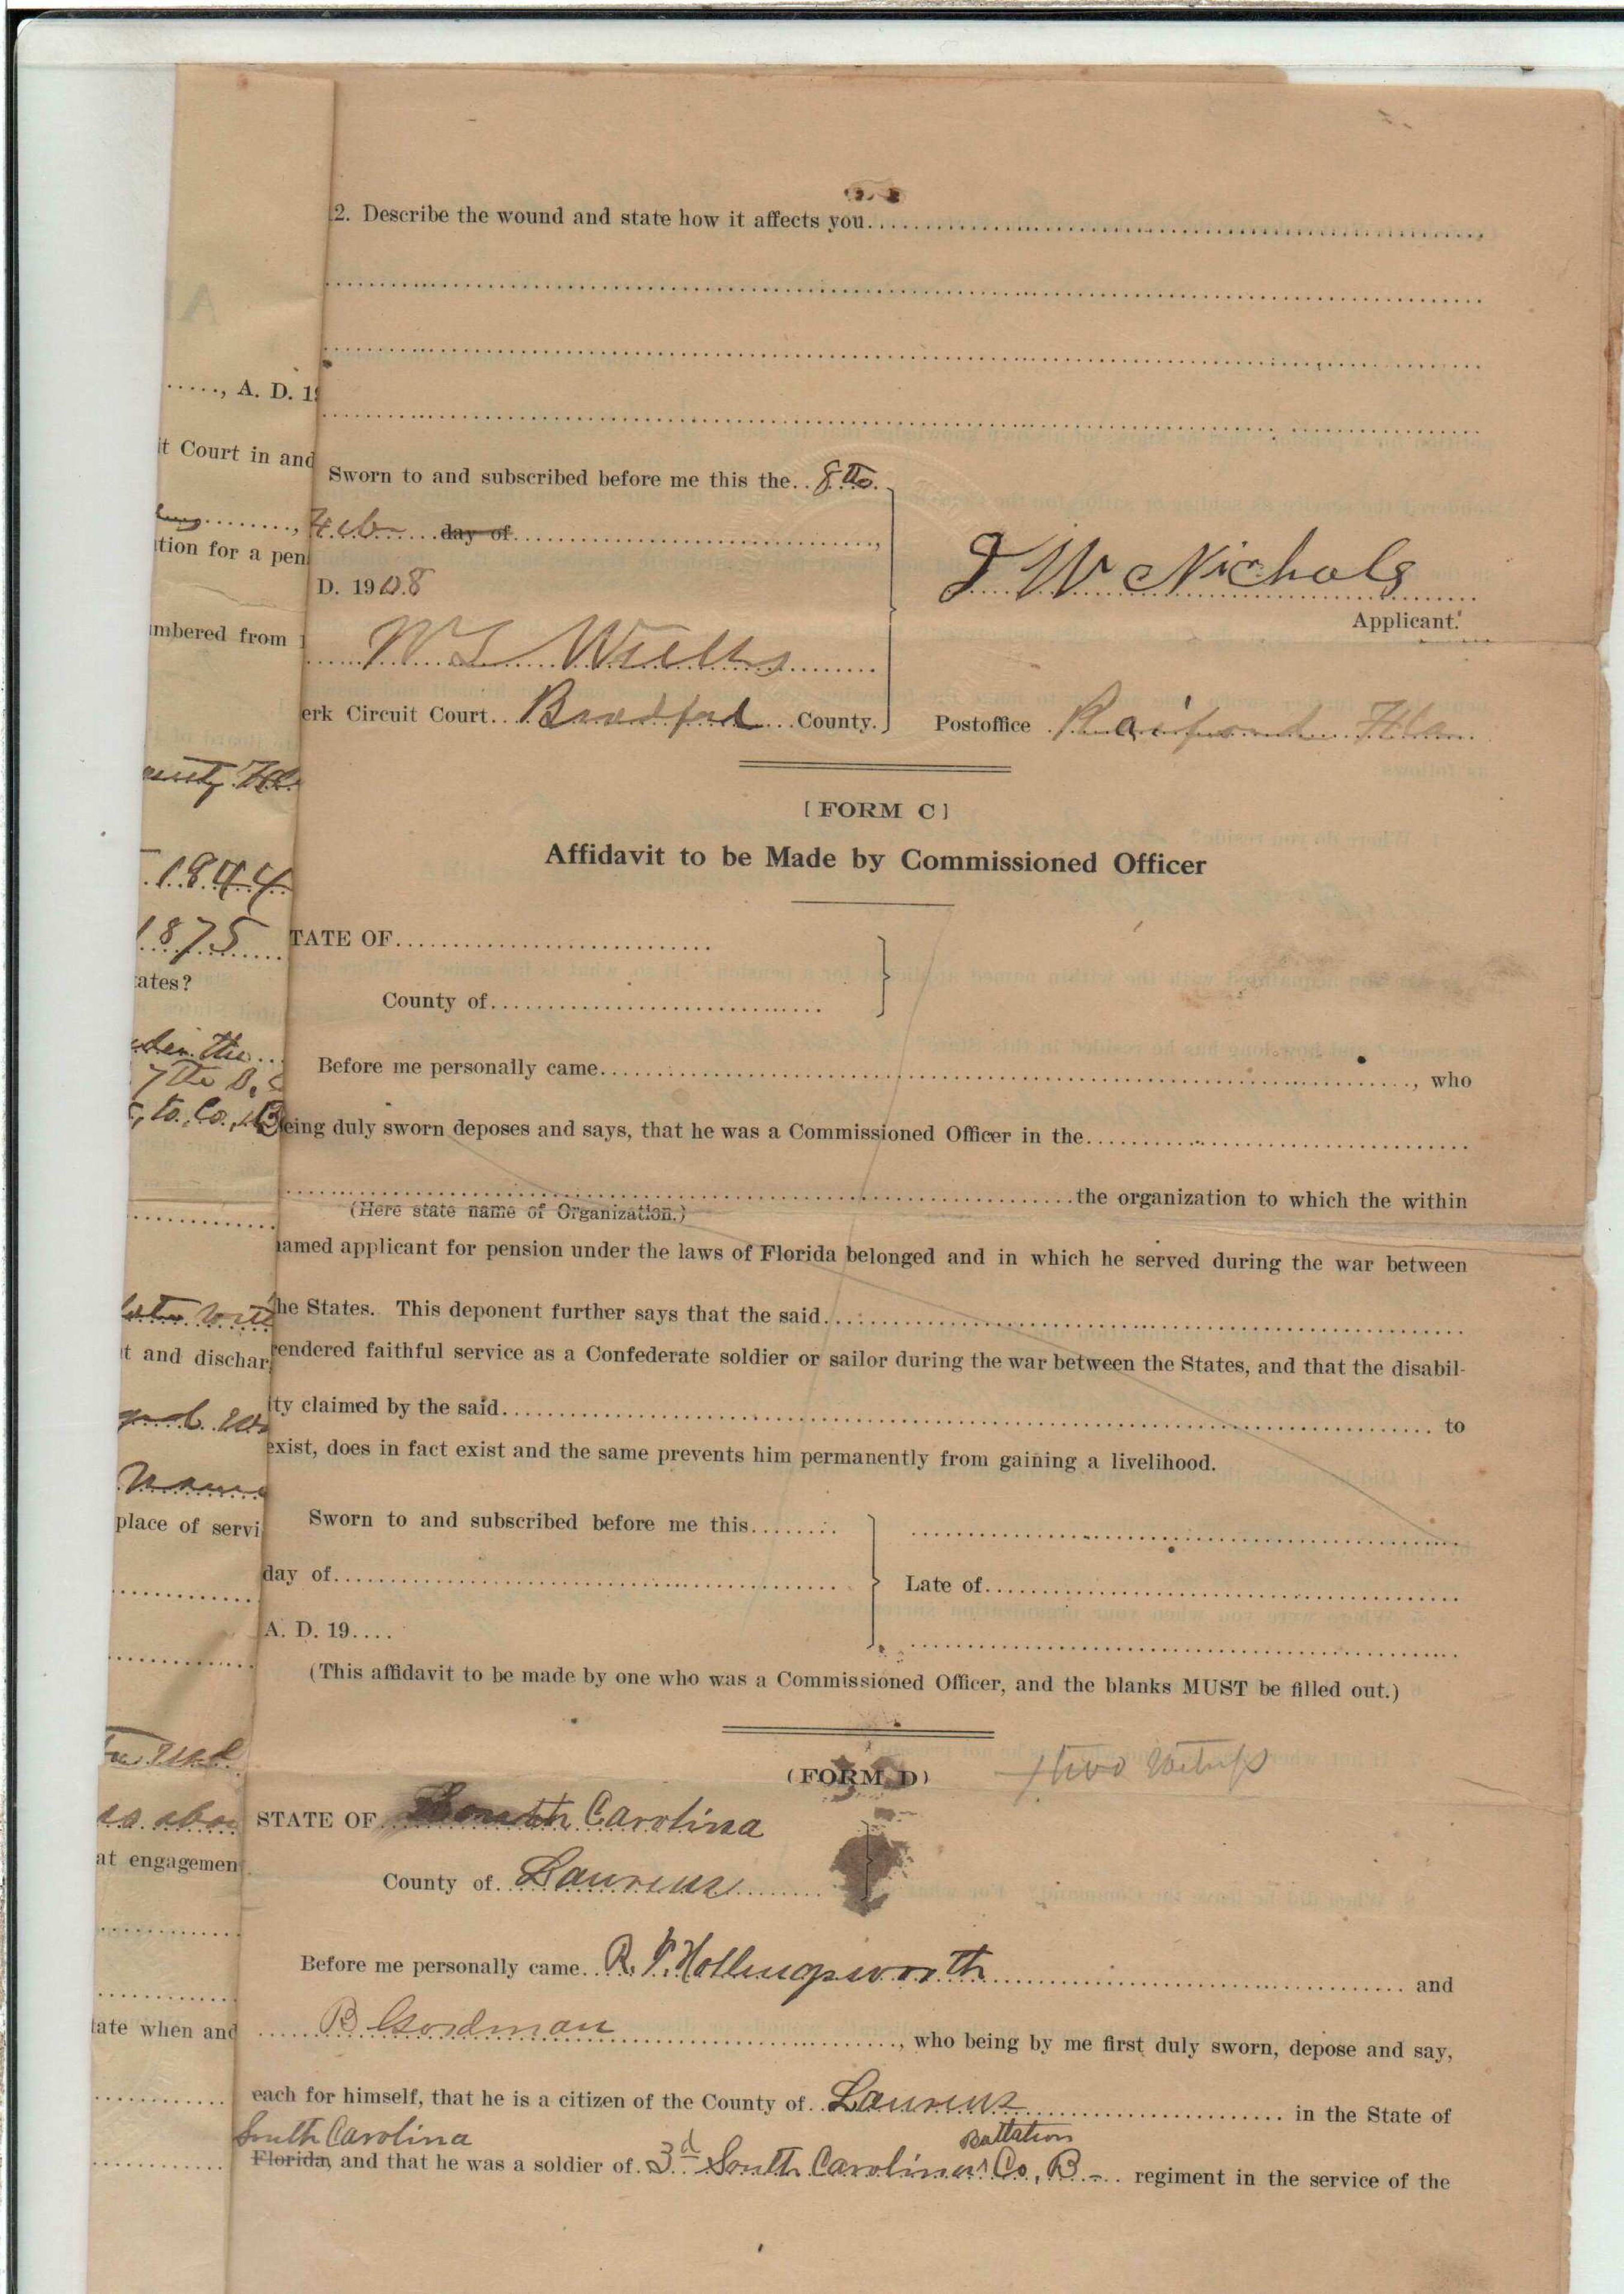 2. Describe the wound and state how it affects you
....., A. D. 19
it Court in and
Sworn to and subscribed before me this the 8th
Feb day of
tion for a pen
D. 1908
J W Nichols
Applicant.
mbered from
erk Circuit Court Bradford County.
Postoffice Raiford Fla.
[FORM C]
Affidavit to be Made by Commissioned Officer
1844
1875
TATE OF
ates?
County of
7th S.
Before me personally came, who
to Co. B
eing duly sworn deposes and says, that he was a Commissioned Officer in the
the organization to which the within
(Here state name of Organization.)
amed applicant for pension under the laws of Florida belonged and in which he served during the war between
he States. This deponent further says that the said
t and dischar
rendered faithful service as a Confederate soldier or sailor during the war between the States, and that the disabil-
ity claimed by the said to
exist, does in fact exist and the same prevents him permanently from gaining a livelihood.
place of servi
Sworn to and subscribed before me this
day of
Late of
A. D. 19....
(This affidavit to be made by one who was a Commissioned Officer, and the blanks MUST be filled out.)
(FORM D)
two Witness
as abov
STATE OF South Carolina
at engagemen
County of Laurens
Before me personally came R. P. Hollingsworth and
tate when and
B Goodman, who being by me first duly sworn, depose and say,
each for himself, that he is a citizen of the County of Laurens in the State of
South Carolina
Battalion
Florida, and that he was a soldier of 3d South Carolina Co, B - regiment in the service of the